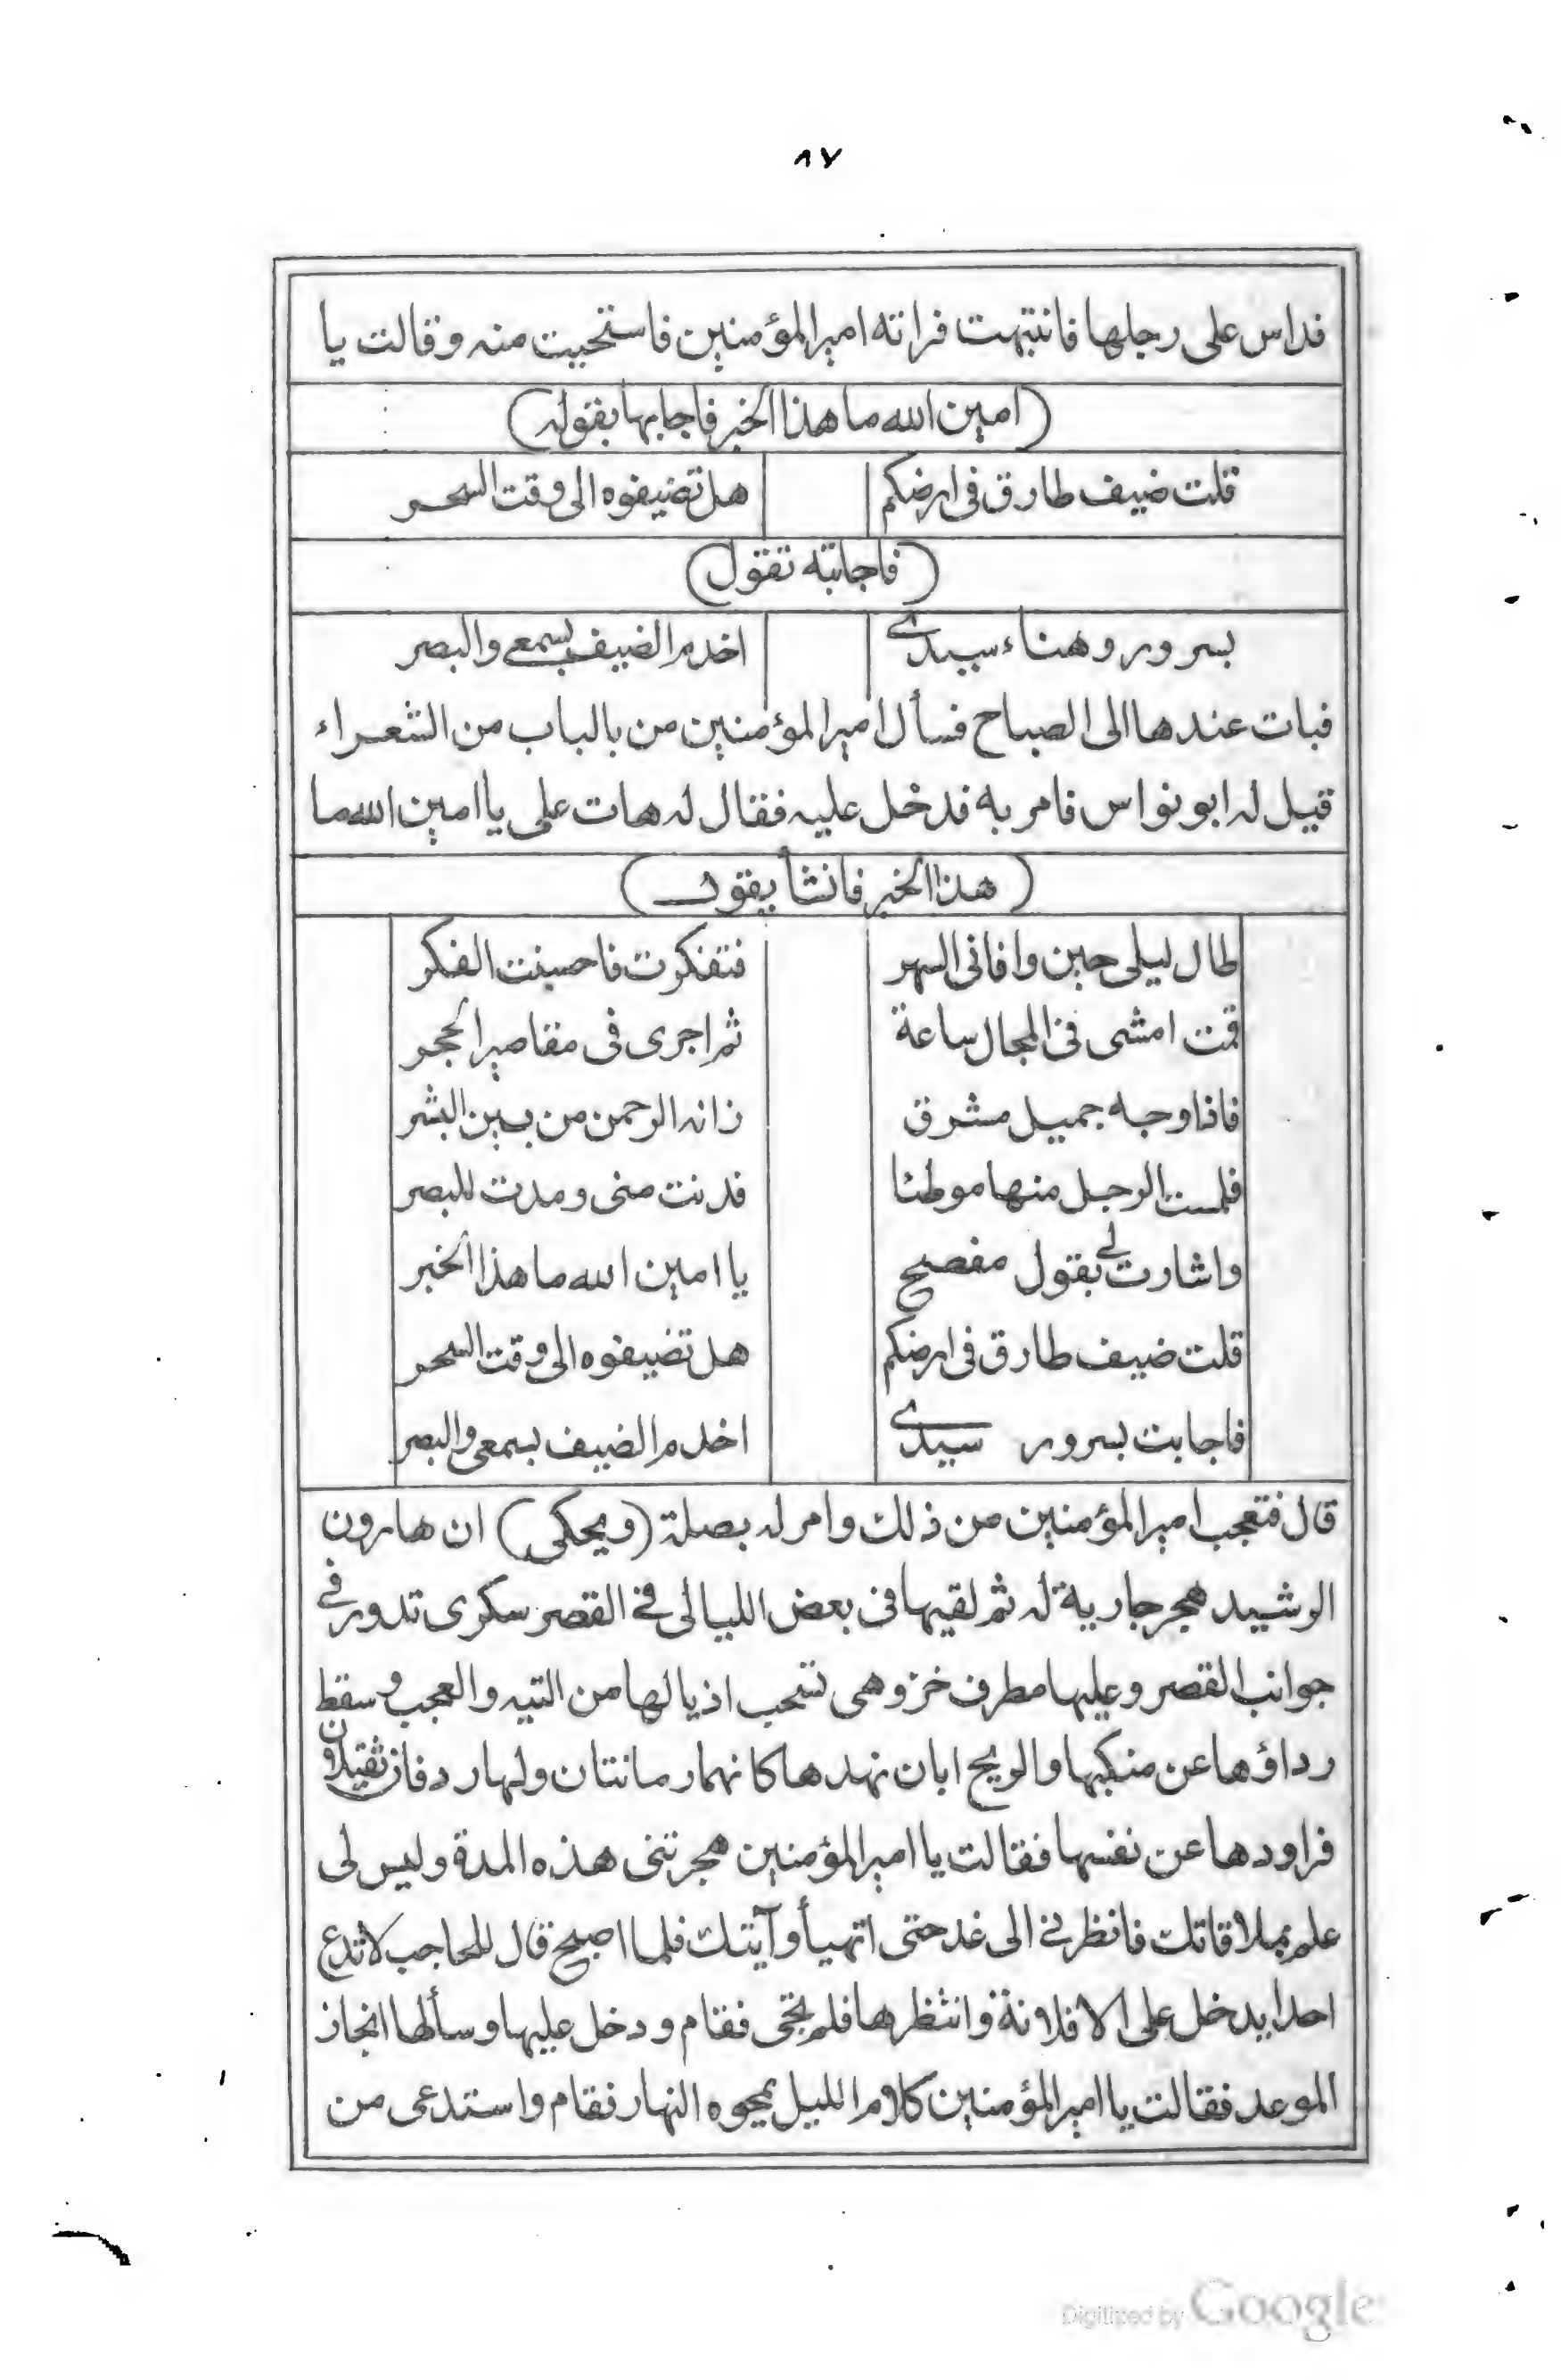 ٨٧
فداس على رجلها فانتبهت فراته امير المؤمنين فاستحيت منه وقالت يا
(امين الله ما هذا الخبر فاجابها بقوله)
قلت ضيف طارق في ارضكم هل تضيفوه الى وقت السحر
(فاجابته تقول)
بسرور وهناء سيدي اخدم الضيف بسمعي والبصر
فبات عندها الى الصباح فسأل امير المؤمنين من بالباب من الشعراء
قيل له ابو نواس فامر به فدخل عليه فقال له هات على يا امين الله ما
(هذا الخبر فانشأ يقول)
طال ليلى حين وافانى السهر فتفكرت فاحسنت الفكر
قمت امشى في المجال ساعة ثم اجرى في مقاصير الحجر
فاذا وجه جميل مشرق زانه الرحمن من بين البشر
فلمست الرجل منها موطئا فدنت منى ومدت للبصر
واشارت لي بقول مفصح يا امين الله ما هذا الخبر
قلت ضيف طارق في ارضكم هل تضيفوه الى وقت السحر
فاجابت بسرور سيدي اخدم الضيف بسمعى والبصر
قال فتعجب امير المؤمنين من ذلك وامر له بصلة (ويحكى) ان هارون
الرشيد هجر جارية له ثم لقيها فى بعض الليالى في القصر سكرى تدور في
جوانب القصر وعليها مطرف خز وهى تسحب اذيالها من التيه والعجب وسقط
رداؤها عن منكبيها والريح ابان نهدها كانهما رمانتان ولها ردفان ثقيلان
فراودها عن نفسها فقالت يا امير المؤمنين هجرتنى هذه المدة وليس لى
علم بملاقاتك فانظرني الى غد حتى اتهيأ وآيتك فلما اصبح قال للحاجب لا تدع
احدا يدخل على الا فلانة وانتظرها فلم تجئ فقام ودخل عليها وسألها انجاز
الموعد فقالت يا امير المؤمنين كلام الليل يمحوه النهار فقام واستدعى من
Digitized by Google